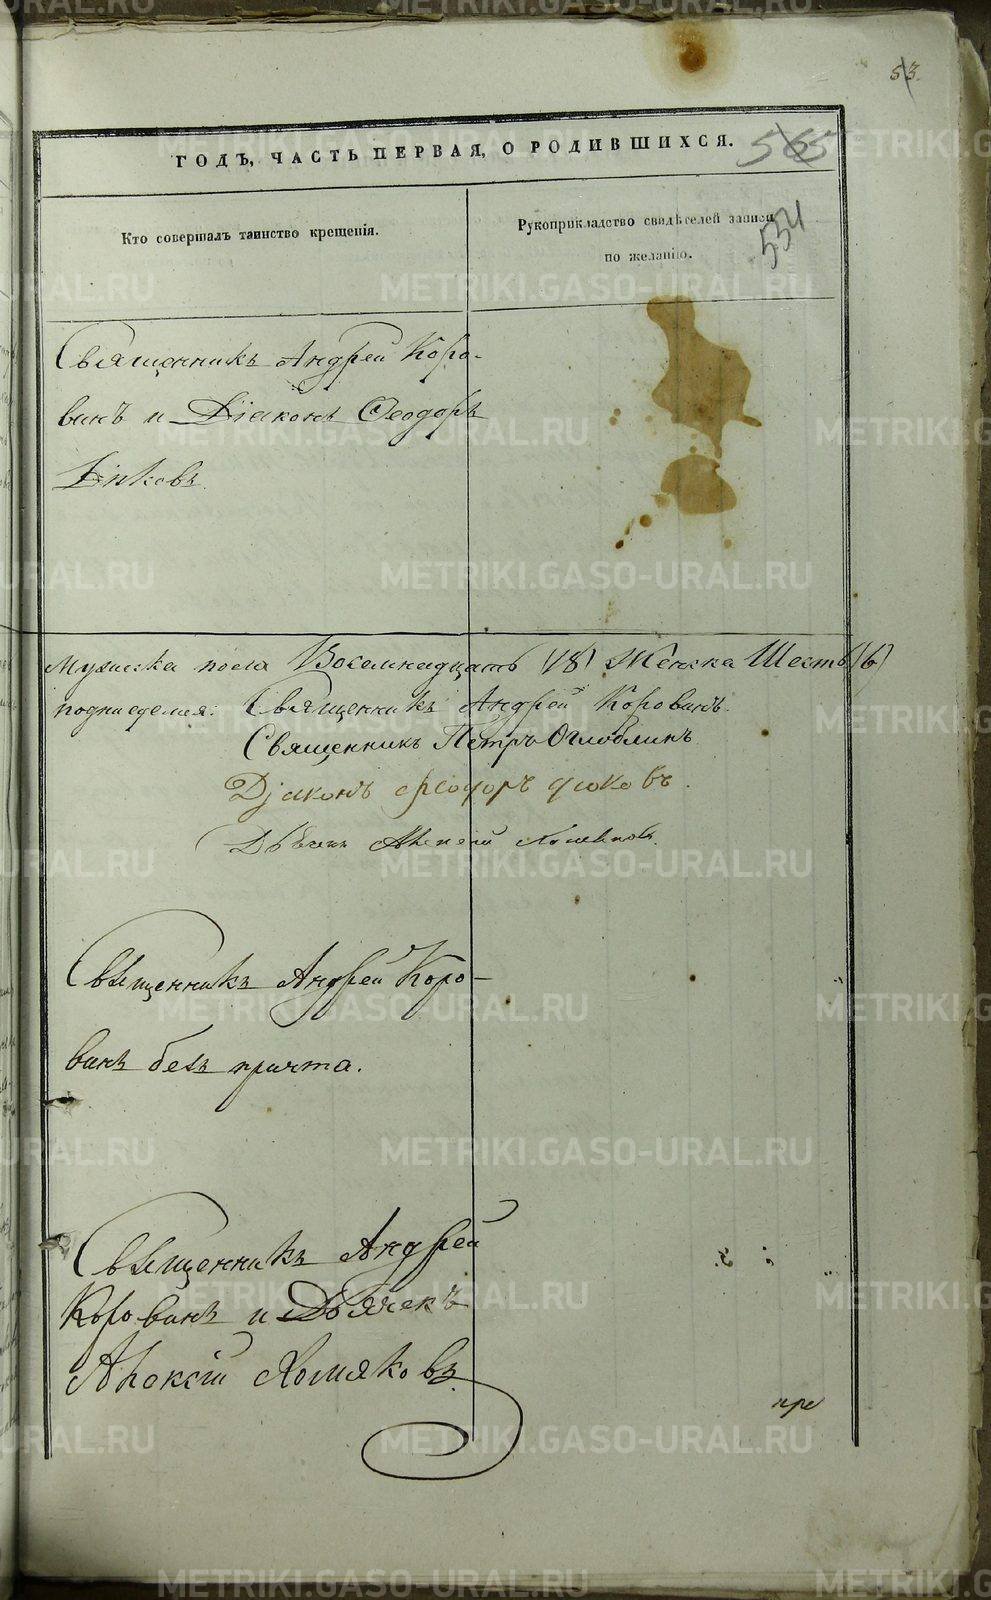 53.
ГОДЪ, ЧАСТЬ ПЕРВАЯ, О РОДИВШИХСЯ. 565
Кто совершалъ таинство крещенія.
Рукоприкладство свидѣтелей записи
по желанію.
534
Священникъ Андрей Коро-
винъ и Діаконъ Ѳеодоръ
Мужеска пола Восемнадцать (18) Женска Шесть (6)
Священникъ Андрей Коровинъ.
Священникъ Петръ Оглоблинъ
Діаконъ
Алексѣй
Священникъ Андрей Коро-
винъ безъ причта.
Священникъ Андрей
Коровинъ и Дьячекъ
Алексѣй Хомяковъ.
пре
METRIKI.GASO-URAL.RU